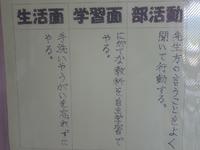 部活動
先生方の言うことをよく
聞いて行動する。
学習面
にがてな教科を自主学習で
やる。
生活面
手洗いやうがいを忘れずに
やる。